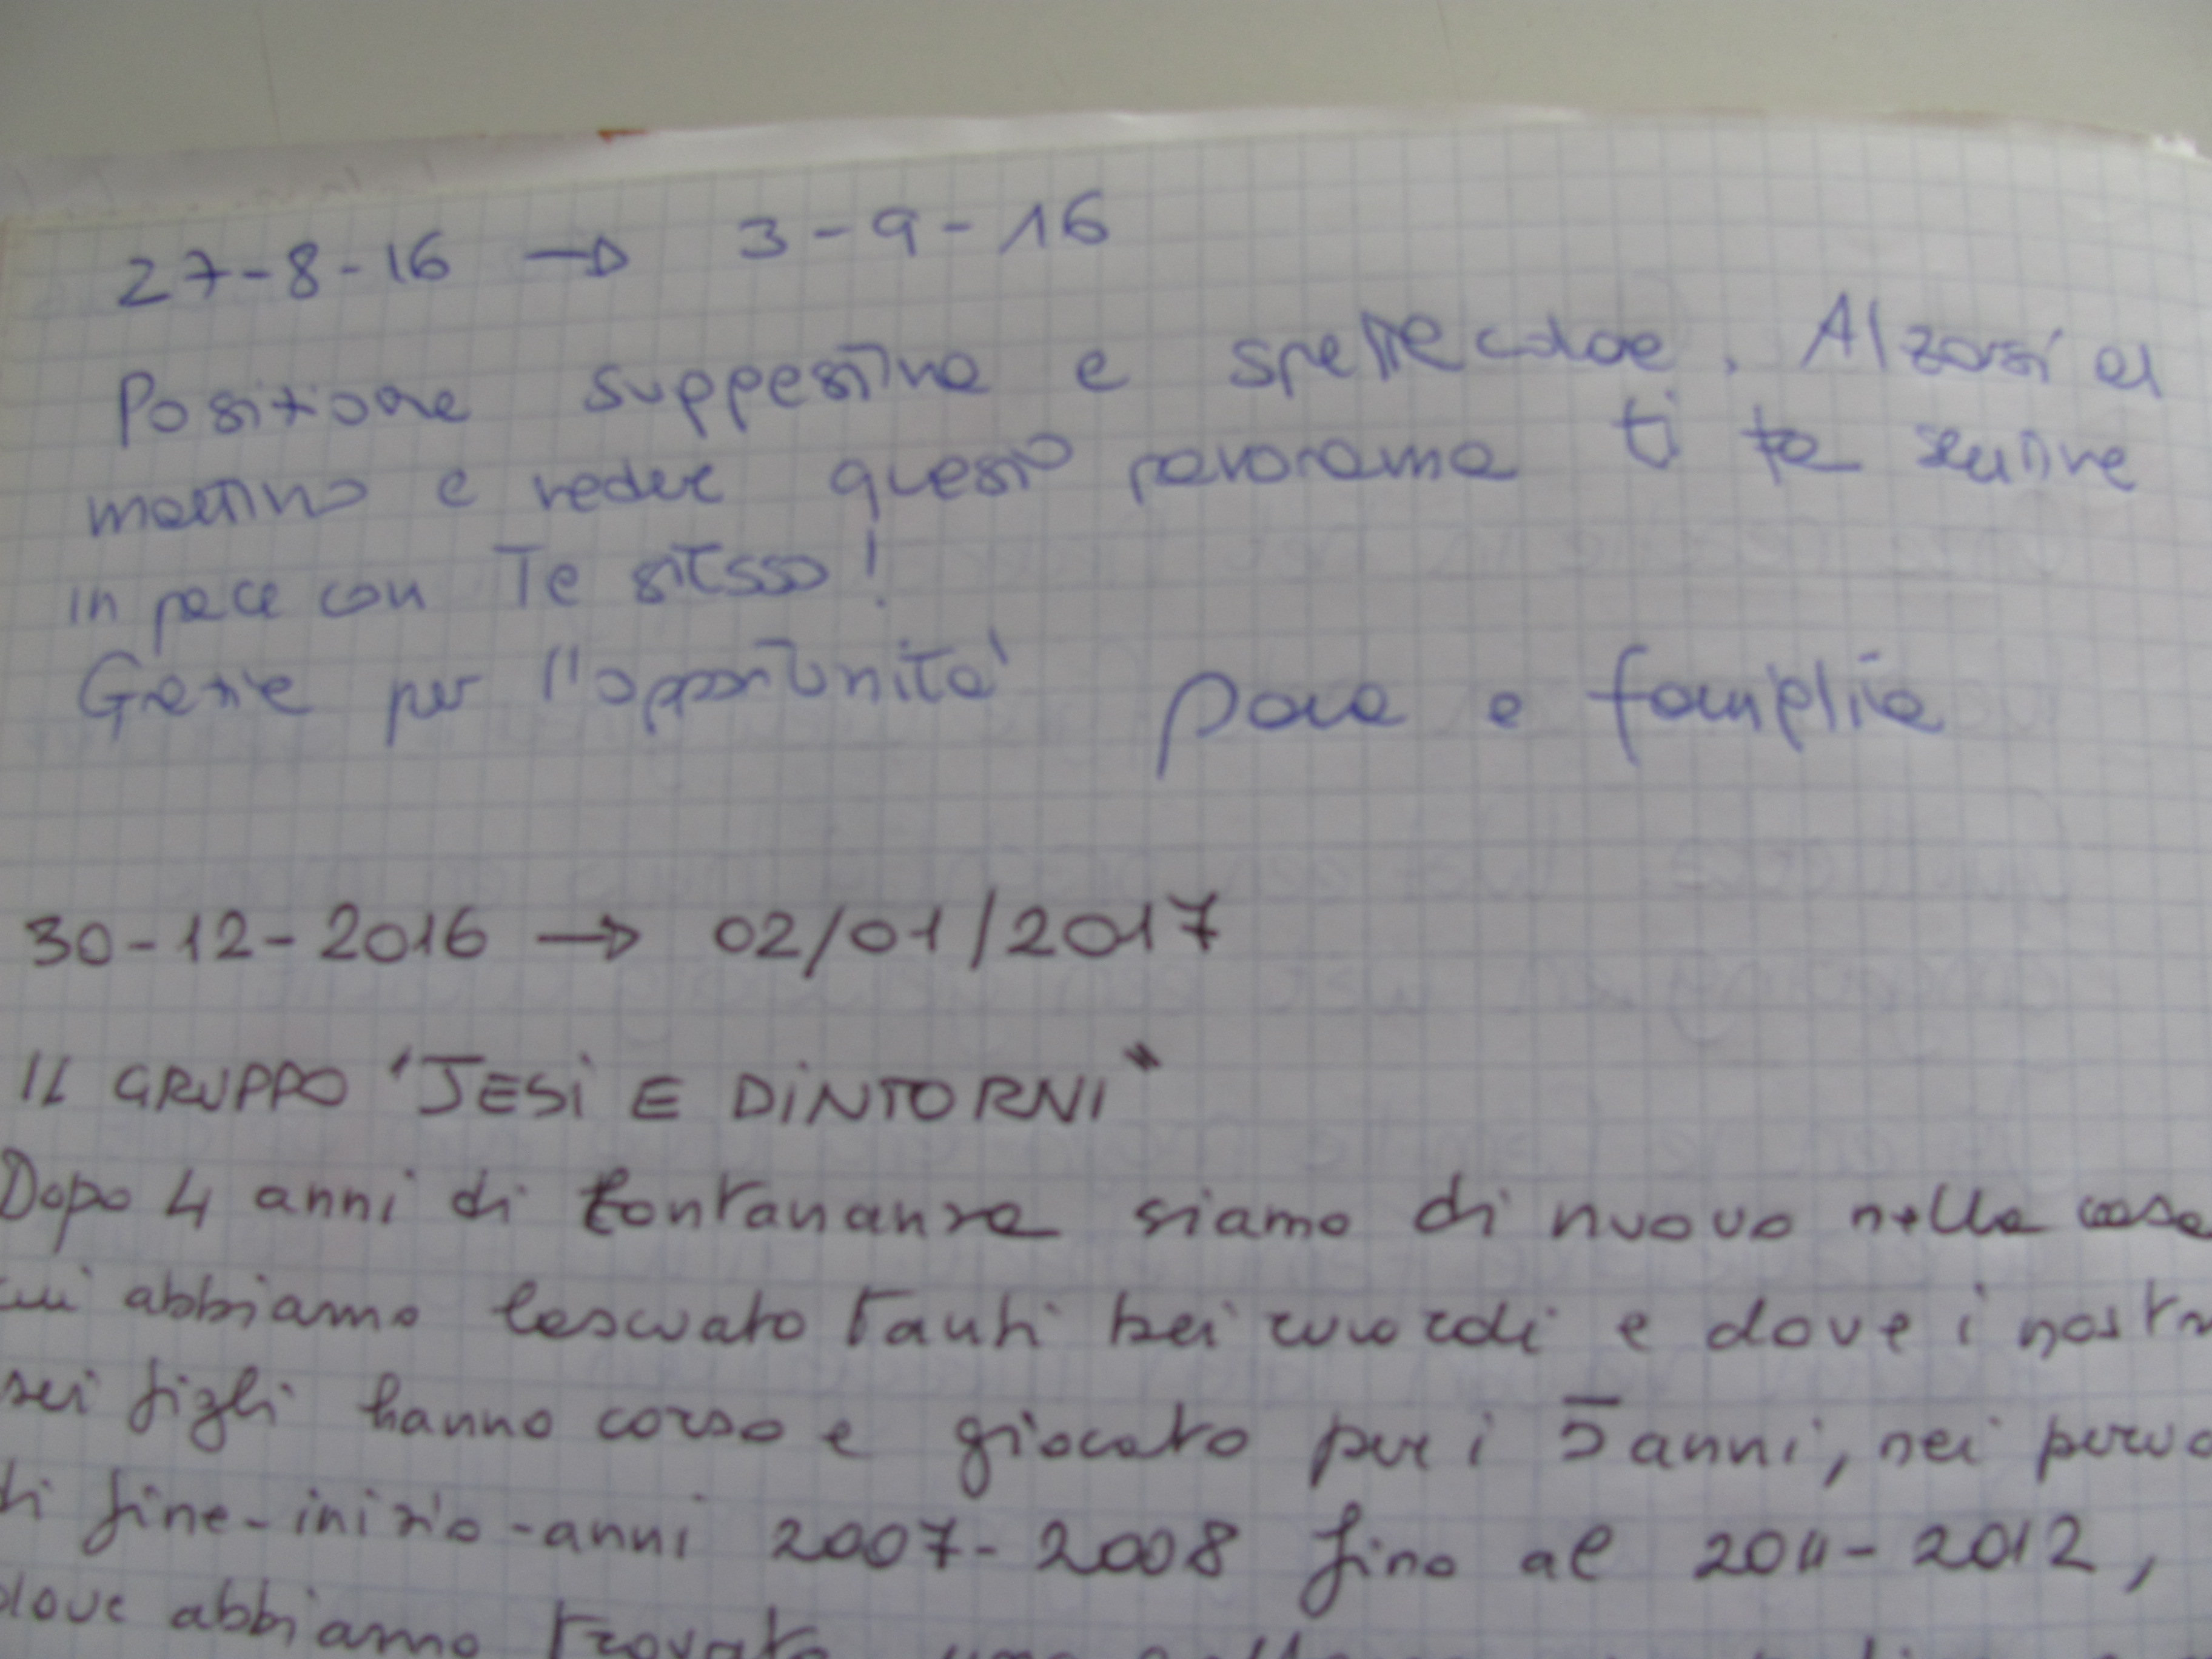 27-8-16 → 3-9-16
Posizione suggestiva e spettacolare. Alzarsi al
mattino e vedere questo panorama ti fa sentire
in pace con Te stesso!
Grazie per l'opportunità e famiglia
30-12-2016 → 02/01/2017
IL GRUPPO "JESI E DINTORNI"
Dopo 4 anni di lontananza siamo di nuovo nella casa
cui abbiamo lasciato tanti bei ricordi e dove i nostri
sei figli hanno corso e giocato per i 5 anni, nei
di fine-inizio-anni 2007-2008 fino al 2011-2012,
dove abbiamo trovato una